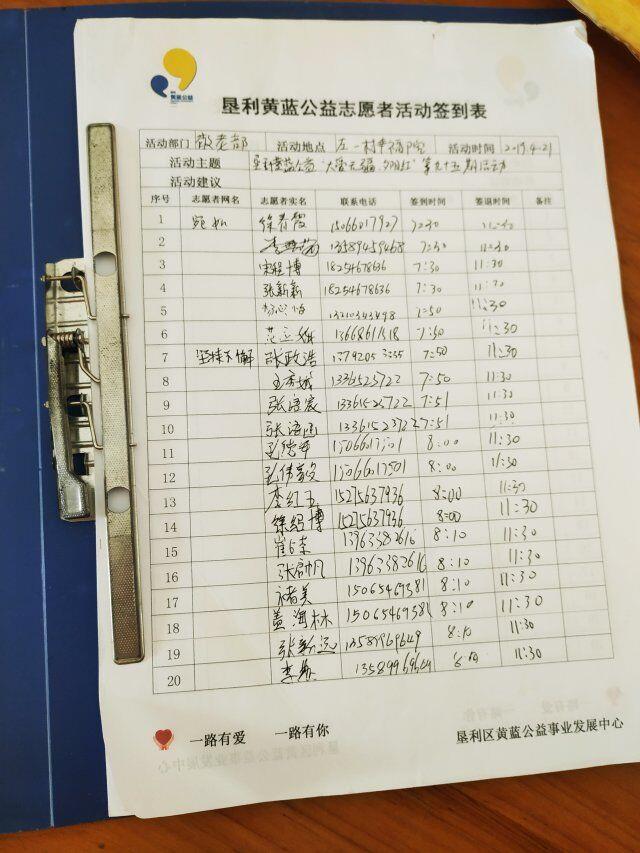 黄蓝公益
垦利黄蓝公益志愿者活动签到表
活动部门 敬老部 活动地点 左一村幸福院 活动时间 2019.4.21
活动主题 垦利黄蓝公益"大爱无疆 夕阳红"第九十五期活动
活动建议
序号 志愿者网名 志愿者实名 联系电话 签到时间 签退时间 备注
1 宛如 徐春霞 15066017927 7:30 11:30
2 13589459468 7:30 11:30
3 宋程博 18254678636 7:30 11:30
4 张新新 18254678636 7:30 11:30
5 13210343498 7:50 11:30
6 13668611518 7:50 11:30
7 坚持不懈 张政浩 7:50 11:30
8 13361523722 7:50 11:30
9 13361523722 7:51 11:30
10 13361523722 7:51 11:30
11 15066017501 8:00 11:30
12 15066017501 8:00 11:30
13 李红玉 15275637936 8:00 11:30
14 徐绍博 15275637936 8:00 11:30
15 13963382616 8:10 11:30
16 13963382616 8:10 11:30
17 褚美 15065469381 8:10 11:30
18 盖海林 15065469381 8:10 11:30
19 张新远 13589969649 8:10 11:30
20 13589969649 11:30
一路有爱 一路有你 垦利区黄蓝公益事业发展中心